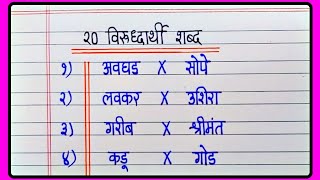 २० विरुध्दार्थी शब्द
१) अवघड X सोपे
२) लवकर X उशिरा
३) गरीब X श्रीमंत
४) कडू X गोड